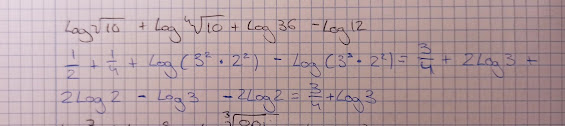 Log√10 + Log ⁴√10 + Log 36 - Log 12
1/2 + 1/4 + Log (3² · 2²) - Log (3² · 2²) = 3/4 + 2Log 3 +
2Log 2 - Log 3 - 2Log 2 = 3/4 + Log 3